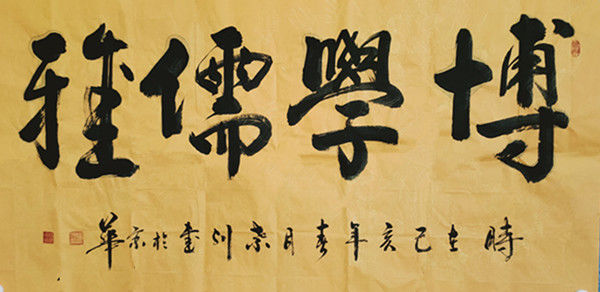 博學儒雅
時在己亥年春月崇川書於京華